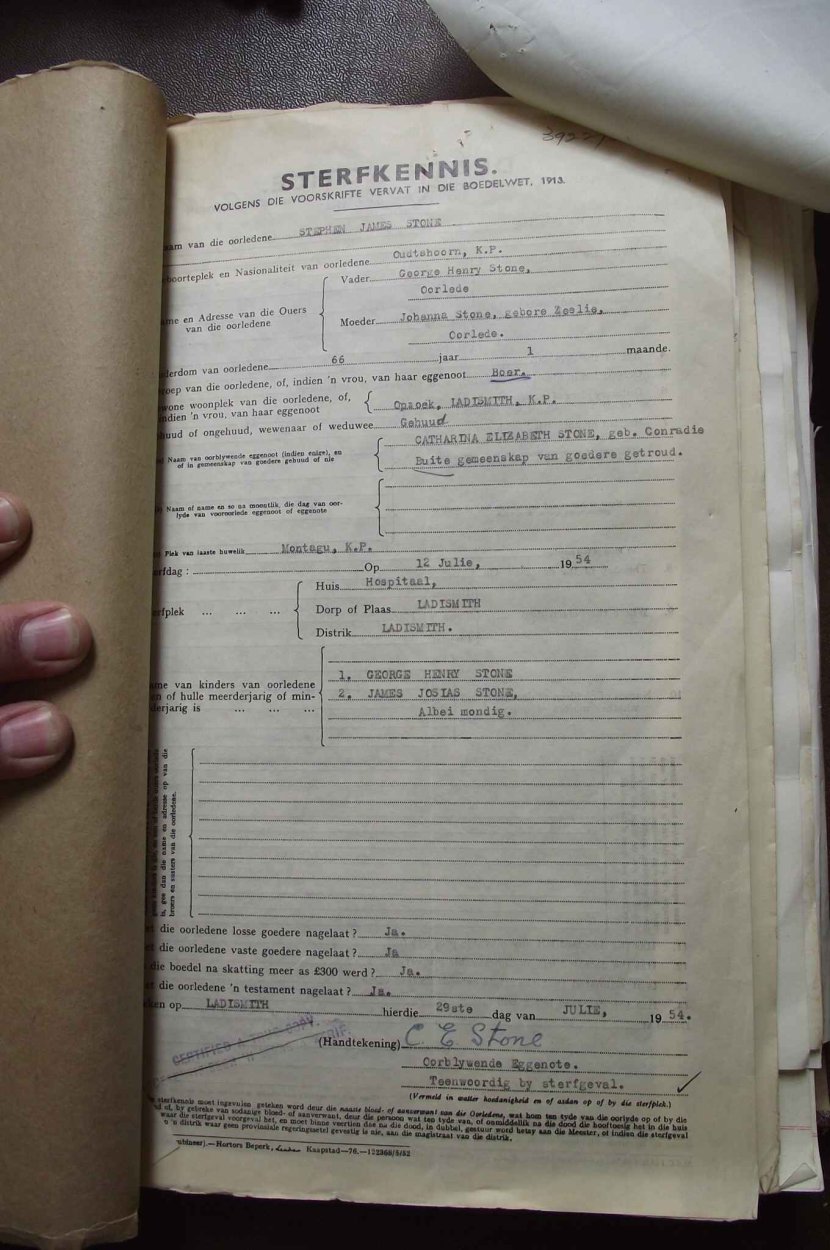 STERFKENNIS.
VOLGENS DIE VOORSKRIFTE VERVAT IN DIE BOEDELWET, 1913.
aam van die oorledene STEPHEN JAMES STONE
boorteplek en Nasionaliteit van oorledene Oudtshoorn, K.P.
Vader George Henry Stone,
Oorlede
me en Adresse van die Ouers
van die oorledene
Moeder Johanna Stone, gebore Zeelie,
Oorlede.
derdom van oorledene 66 jaar 1 maande.
roep van die oorledene, of, indien 'n vrou, van haar eggenoot Boer.
wone woonplek van die oorledene, of,
indien 'n vrou, van haar eggenoot
Opzoek, LADISMITH, K.P.
huud of ongehuud, wewenaar of weduwee Gehuud
CATHARINA ELIZABETH STONE, geb. Conradie
Naam van oorblywende eggenoot (indien enige), en
of in gemeenskap van goedere gehuud of nie
Buite gemeenskap van goedere getroud.
Naam of name en so na moontlik, die dag van oor-
lyde van vooroorlede eggenoot of eggenote
Plek van laaste huwelik Montagu, K.P.
erfdag : Op 12 Julie, 1954
Huis Hospitaal,
erfplek ... ... ... Dorp of Plaas LADISMITH
Distrik LADISMITH.
me van kinders van oorledene
en of hulle meerderjarig of min-
derjarig is ... ... ...
1. GEORGE HENRY STONE
2. JAMES JOSIAS STONE,
Albei mondig.
is, gee dan die name en adresse op van die
broers en susters van die oorledene.
die oorledene losse goedere nagelaat ? Ja.
die oorledene vaste goedere nagelaat ? Ja
die boedel na skatting meer as £300 werd ? Ja.
die oorledene 'n testament nagelaat ? Ja.
ken op LADISMITH hierdie 29ste dag van JULIE, 1954.
CERTIFIED A TRUE COPY.
(Handtekening) C E Stone
Oorblywende Eggenote.
Teenwoordig by sterfgeval.
(Vermeld in watter hoedanigheid en of asdan op of by die sterfplek.)
sterfkennis moet ingevulen geteken word deur die naaste bloed- of aanverwant aan die Oorledene, wat hom ten tyde van die oorlyde op of by die
of, by gebreke van sodanige bloed- of aanverwant, deur die persoon wat ten tyde van, of onmiddellik na die dood die hooftoesig het in die huis
waar die sterfgeval voorgeval het, en moet binne veertien dae na die dood, in dubbel, gestuur word hetsy aan die Meester, of indien die sterfgeval
'n distrik waar geen provinsiale regeringssetel gevestig is nie, aan die magistraat van die distrik.
ubineer).—Hortors Beperk, Kaapstad—76.—122368/5/52